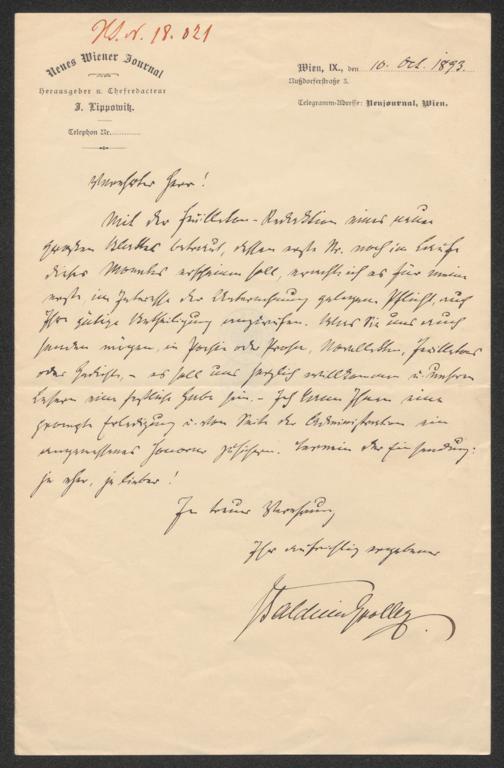 N. N. 18.021
Neues Wiener Journal
Herausgeber u. Chefredacteur
J. Lippowitz.
Telephon Nr. ..........
Wien, IX., den 10. Oct. 1893.
Nußdorferstraße 3.
Telegramm-Adresse: Neujournal, Wien.
Verehrter Herr!
Mit der Feuilleton-Redaktion eines neuen
großen Blattes betraut, dessen erste Nr. noch im Laufe
dieses Monates erscheinen soll, erachte ich es für meine
erste, im Interesse der Unternehmung gelegene Pflicht, auch
Ihre gütige Betheiligung anzurufen. Was Sie uns auch
senden mögen, in Poesie oder Prosa, Novelletten, Feuilletons
oder Gedichte, – es soll uns herzlich willkommen u. unseren
Lesern eine festliche Gabe sein. – Ich kann Ihnen eine
prompte Erledigung u. von Seite der Administration ein
angemessenes Honorar zusichern. Termin der Einsendung:
je eher, je lieber!
In treuer Verehrung
Ihr aufrichtig ergebener
Balduin Groller.